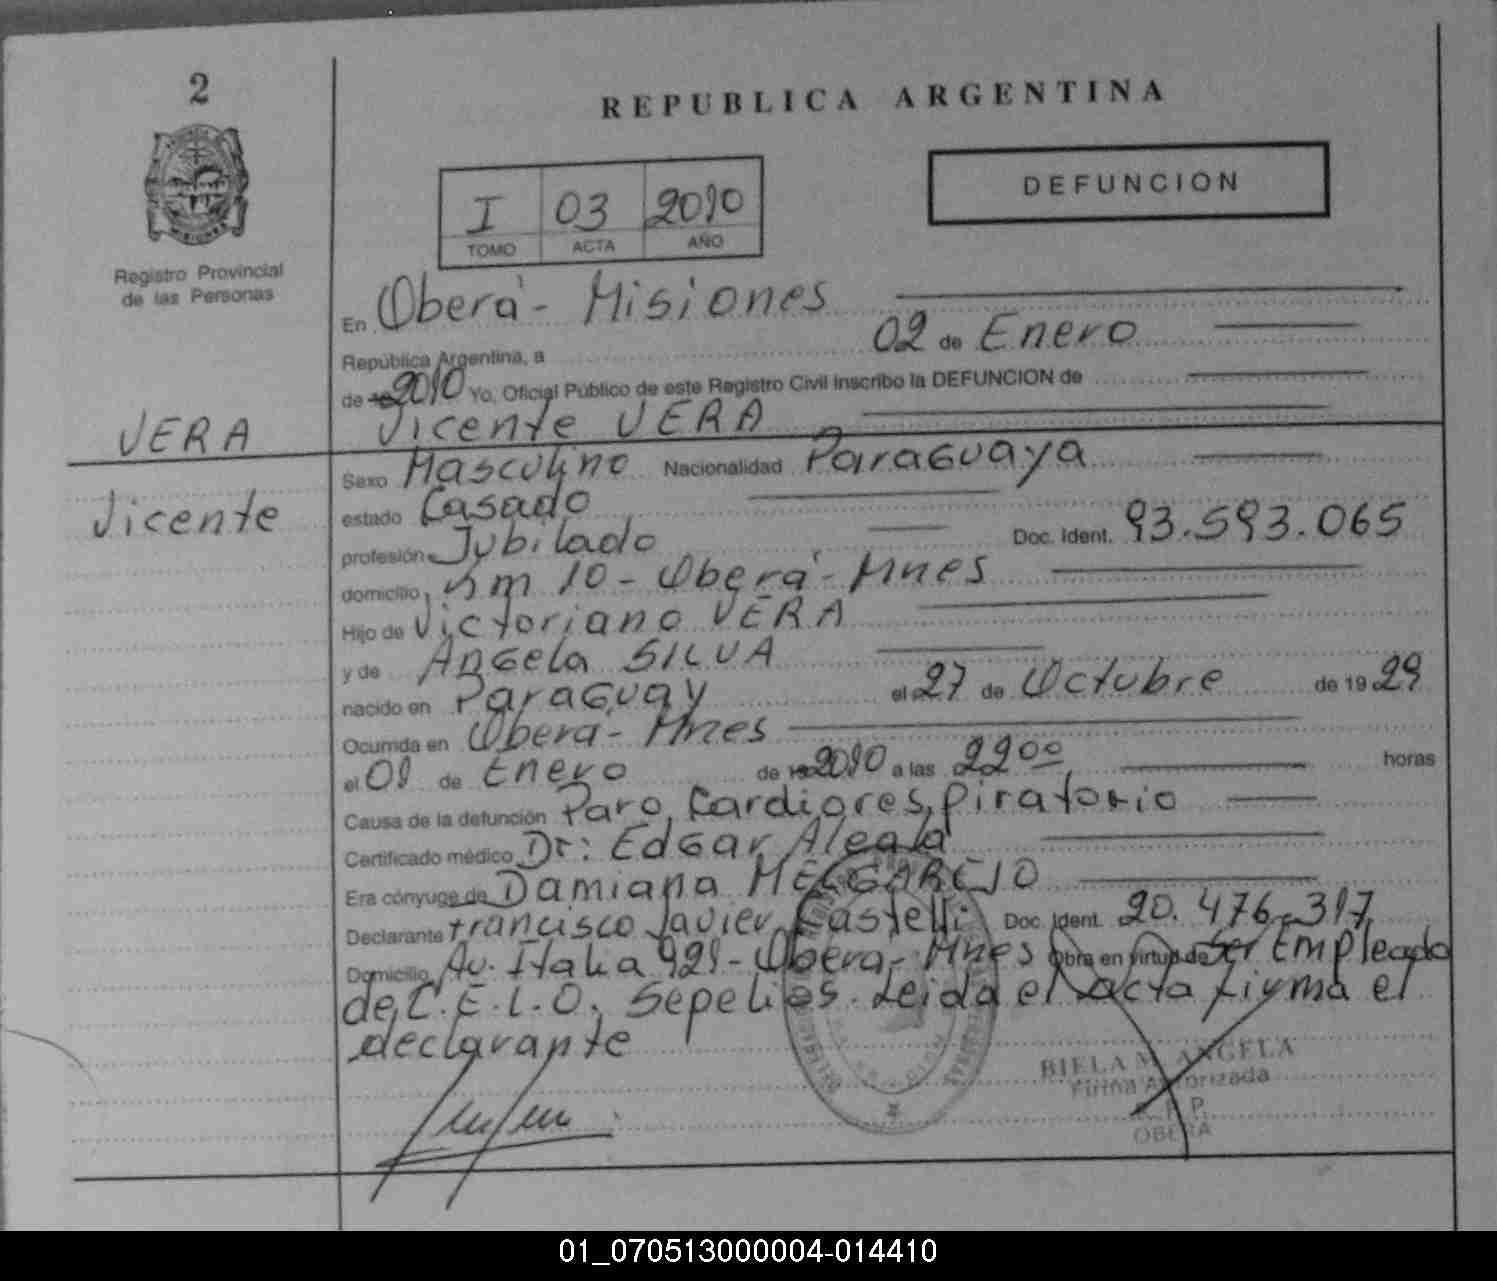 2
REPUBLICA ARGENTINA
DEFUNCION
I 03 2010
TOMO ACTA AÑO
MISIONES
Registro Provincial
de las Personas
En Oberá - Misiones
República Argentina, a 02 de Enero
de 2010 Yo, Oficial Público de este Registro Civil inscribo la DEFUNCION de
VERA
Vicente VERA
Sexo Masculino Nacionalidad Paraguaya
Vicente
estado Casado
profesión Jubilado Doc. Ident. 93.593.065
domicilio Km 10 - Oberá - Mnes
Hijo de Victoriano VERA
y de Angela SILVA
nacido en Paraguay el 27 de Octubre de 1929
Ocurrida en Oberá - Mnes
el 01 de Enero de 2010 a las 22 00 horas
Causa de la defunción Paro Cardiorespiratorio
Certificado médico Dr: Edgar
Era cónyuge de Damiana MELGAREJO
Declarante Francisco Javier Castelli Doc. Ident. 20.476.317
Domicilio Av. Italia 921 - Oberá - Mnes Obra en virtud de Ser Empleado
de C.E.L.O. Sepelios. Leida el acta firma el
declarante
BIELA M. ANGELA
Firma Autorizada
OBERA
01_070513000004-014410